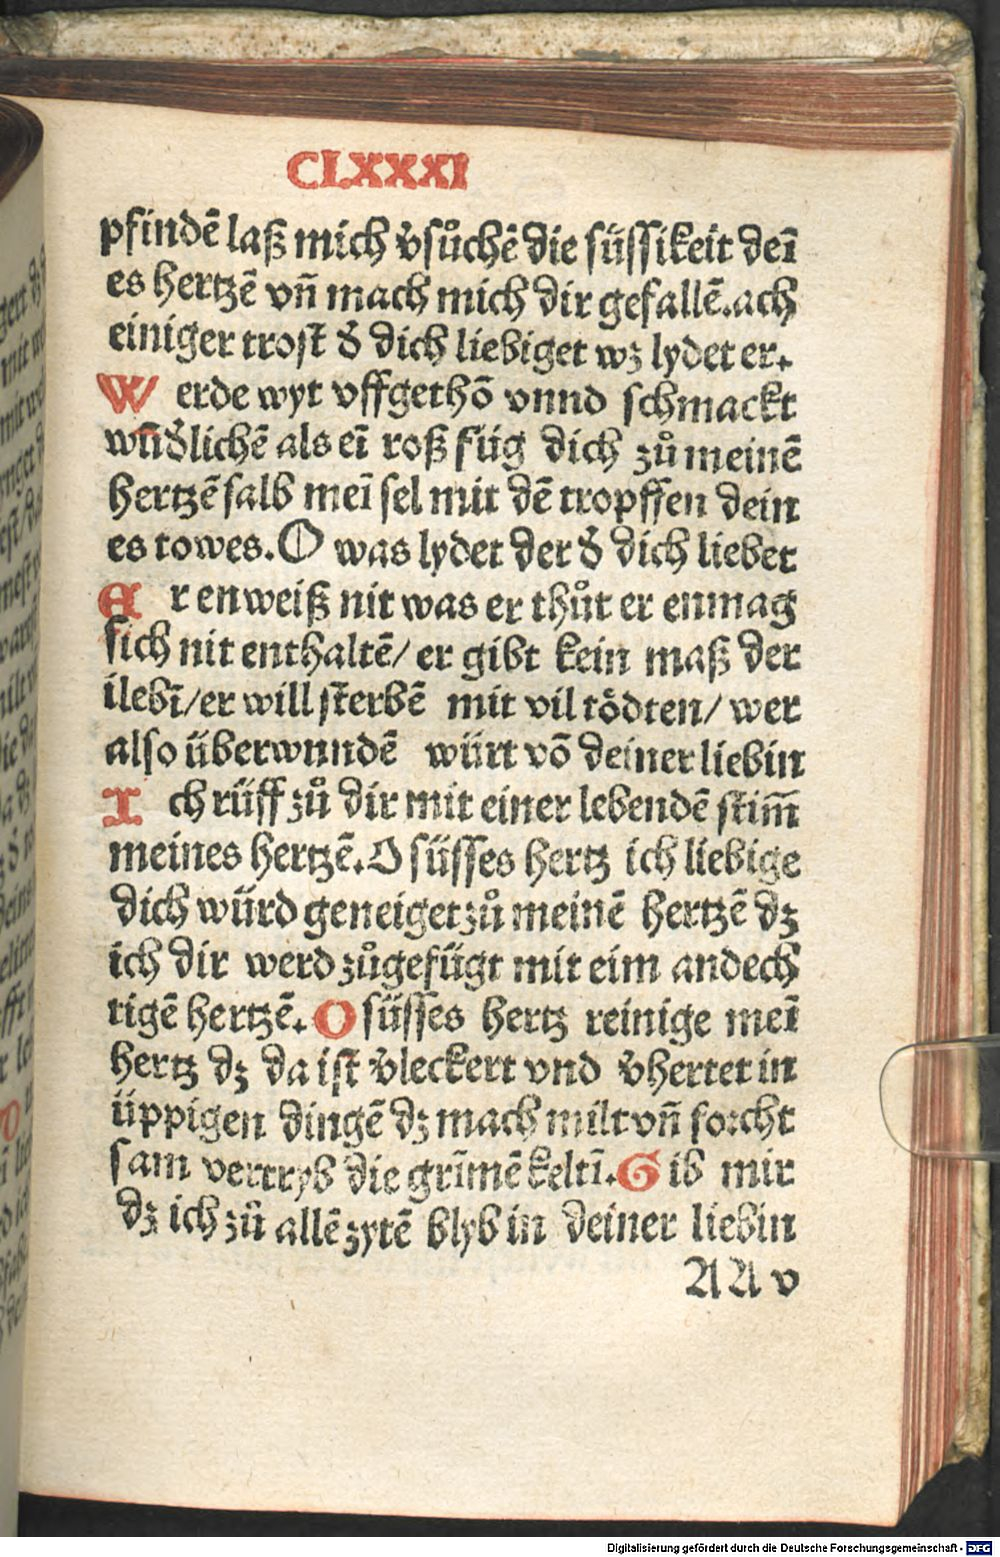 CLXXXI
pfindē laß mich v̓sůchē die süssikeit deī
es hertzē vn̄ mach mich dir gefallē.ach
einiger trost d̓ dich liebiget wz lydet er.
Werde wyt vffgethō vnnd schmackt
wūd̓lichē als eī roß füg dich zů meinē
hertzē salb meī sel mit dē tropffen dein
es towes. O was lydet der d̓ dich liebet
Er enweiß nit was er thůt er enmag
sich nit enthaltē/ er gibt kein maß der
ilebī/er will sterbē mit vil tödten/ wer
also überwnndē würt vō deiner liebin
Ich rüff zů dir mit einer lebendē stim̄
meines hertzē. O süsses hertz ich liebige
dich würd geneiget zů meinē hertzē dz
ich dir werd zůgefügt mit eim andech
tigē hertzē. O süsses hertz reinige meī
hertz dz da ist v̓fleckert vnd v̓hertet in
üppigen dingē dz mach milt vn̄ forcht
sam vertryb die grīmē keltī. Gib mir
dz ich zů allē zytē blyb in deiner liebin
AA v
Digitalisierung gefördert durch die Deutsche Forschungsgemeinschaft - DFG